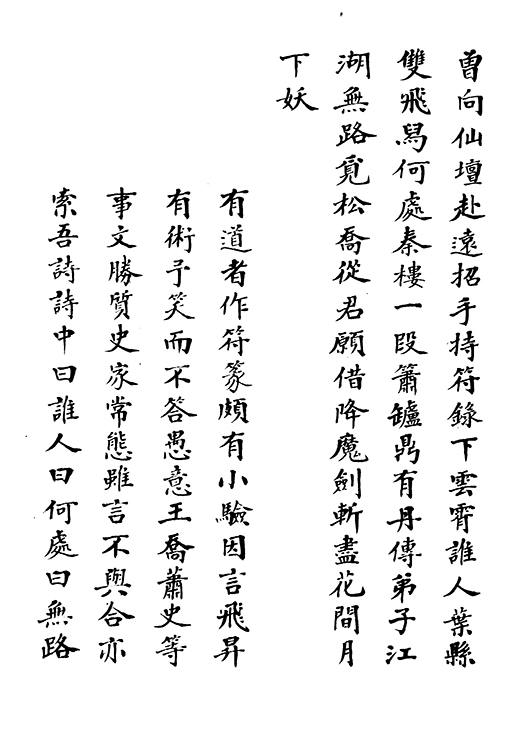 曾向仙壇赴遠招手持符籙下雲霄誰人葉縣
雙飛舄何處秦樓一段簫罏鼎有丹傳弟子江
湖無路覓松喬從君願借降魔劍斬盡花間月
下妖
有道者作符篆頗有小驗因言飛昇
有術予笑而不答愚意王喬蕭史等
事文勝質史家常態雖言不與合亦
索吾詩詩中曰誰人曰何處曰無路